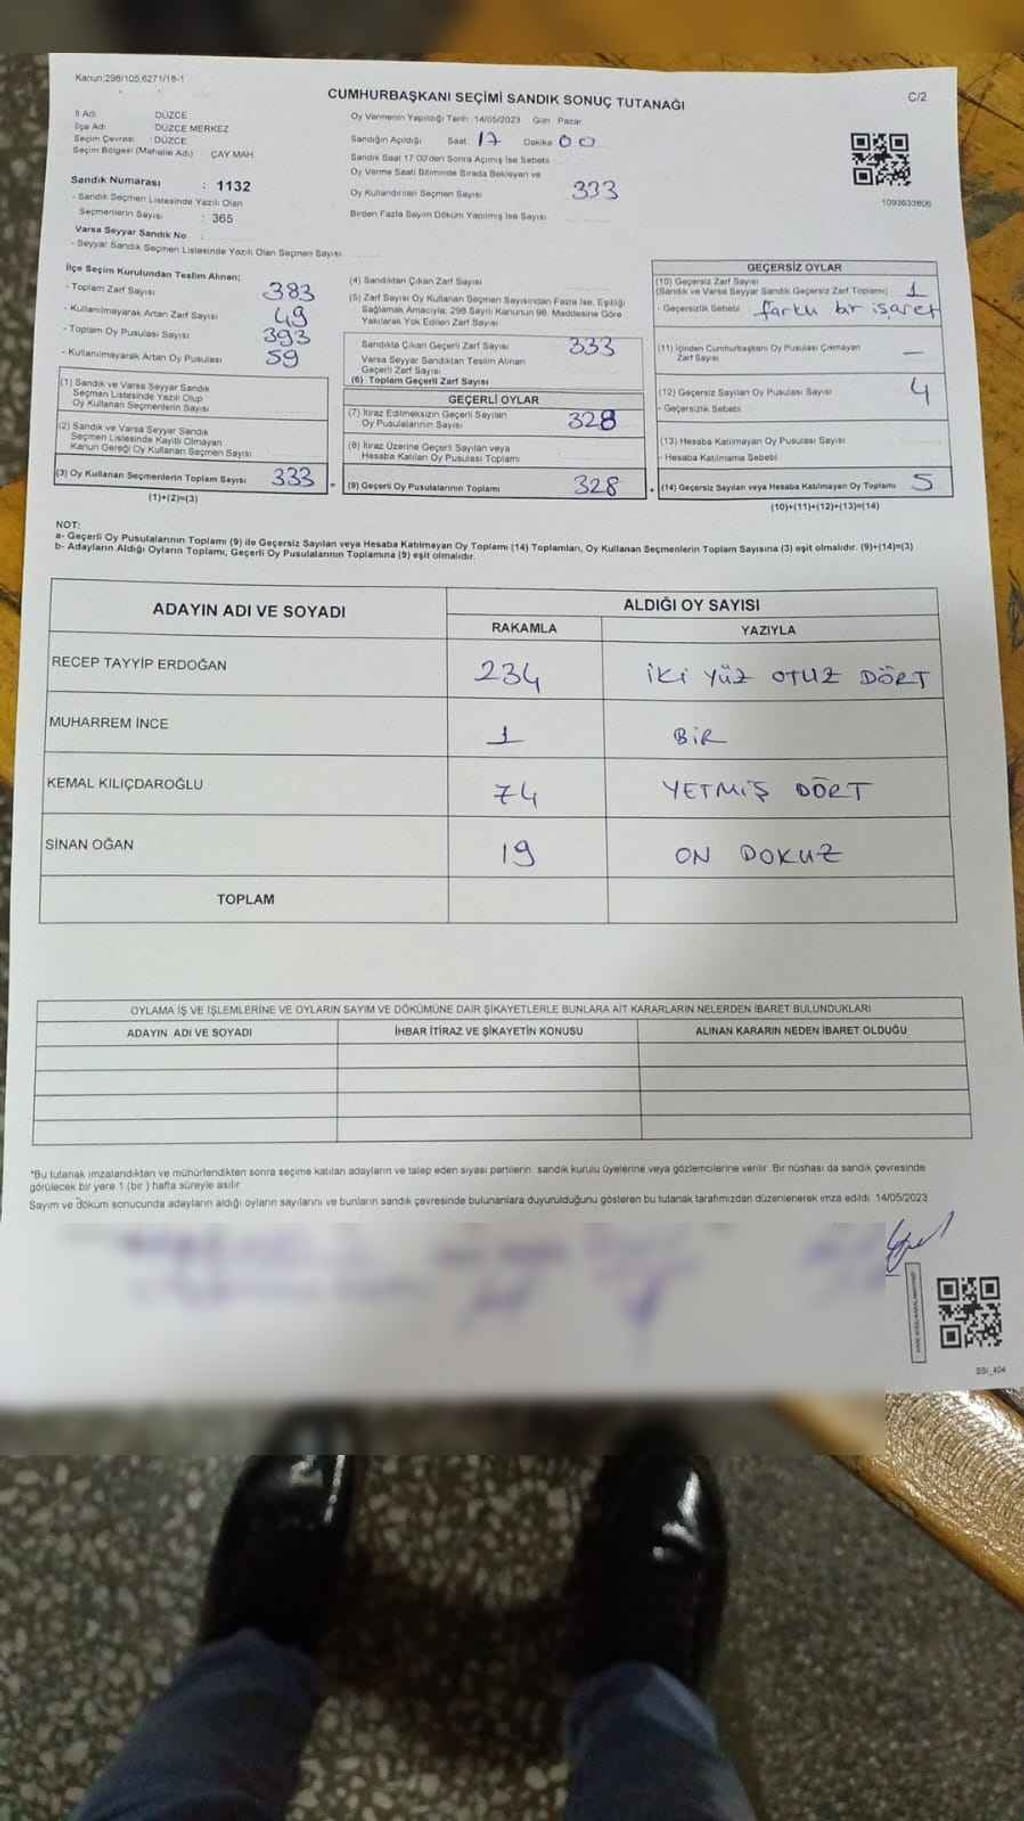 Kanun:298/105,6271/18-1
CUMHURBAŞKANI SEÇİMİ SANDIK SONUÇ TUTANAĞI
C/2
İl Adı DÜZCE
İlçe Adı DÜZCE MERKEZ
Seçim Çevresi : DÜZCE
Seçim Bölgesi (Mahalle Adı) ÇAY MAH.
Sandık Numarası : 1132
- Sandık Seçmen Listesinde Yazılı Olan
Seçmenlerin Sayısı : 365
Varsa Seyyar Sandık No
- Seyyar Sandık Seçmen Listesinde Yazılı Olan Seçmen Sayısı
Oy Vermenin Yapıldığı Tarih: 14/05/2023 Gün: Pazar
Sandığın Açıldığı Saat 17 Dakika 00
Sandık Saat 17.00'den Sonra Açılmış İse Sebebi
Oy Verme Saati Bitiminde Sırada Bekleyen ve
Oy Kullandırılan Seçmen Sayısı 333
Birden Fazla Sayım Döküm Yapılmış İse Sayısı
1093633806
İlçe Seçim Kurulundan Teslim Alınan;
- Toplam Zarf Sayısı 383
- Kullanılmayarak Artan Zarf Sayısı 49
- Toplam Oy Pusulası Sayısı 393
- Kullanılmayarak Artan Oy Pusulası 59
(1) Sandık ve Varsa Seyyar Sandık
Seçmen Listesinde Yazılı Olup
Oy Kullanan Seçmenlerin Sayısı
(2) Sandık ve Varsa Seyyar Sandık
Seçmen Listesinde Kayıtlı Olmayan
Kanun Gereği Oy Kullanan Seçmen Sayısı
(3) Oy Kullanan Seçmenlerin Toplam Sayısı 333
(1)+(2)=(3)
(4) Sandıktan Çıkan Zarf Sayısı
(5) Zarf Sayısı Oy Kullanan Seçmen Sayısından Fazla İse, Eşitliği
Sağlamak Amacıyla; 298 Sayılı Kanunun 98. Maddesine Göre
Yakılarak Yok Edilen Zarf Sayısı
Sandıkta Çıkan Geçerli Zarf Sayısı 333
Varsa Seyyar Sandıktan Teslim Alınan
Geçerli Zarf Sayısı
(6) Toplam Geçerli Zarf Sayısı
GEÇERLİ OYLAR
(7) İtiraz Edilmeksizin Geçerli Sayılan
Oy Pusulalarının Sayısı 328
(8) İtiraz Üzerine Geçerli Sayılan veya
Hesaba Katılan Oy Pusulası Toplamı
(9) Geçerli Oy Pusulalarının Toplamı 328
GEÇERSİZ OYLAR
(10) Geçersiz Zarf Sayısı
(Sandık ve Varsa Seyyar Sandık Geçersiz Zarf Toplamı) 1
- Geçersizlik Sebebi farklı bir işaret
(11) İçinden Cumhurbaşkanı Oy Pusulası Çıkmayan
Zarf Sayısı —
(12) Geçersiz Sayılan Oy Pusulası Sayısı 4
- Geçersizlik Sebebi
(13) Hesaba Katılmayan Oy Pusulası Sayısı
- Hesaba Katılmama Sebebi
(14) Geçersiz Sayılan veya Hesaba Katılmayan Oy Toplamı 5
(10)+(11)+(12)+(13)=(14)
NOT:
a- Geçerli Oy Pusulalarının Toplamı (9) ile Geçersiz Sayılan veya Hesaba Katılmayan Oy Toplamı (14) Toplamları, Oy Kullanan Seçmenlerin Toplam Sayısına (3) eşit olmalıdır. (9)+(14)=(3)
b- Adayların Aldığı Oyların Toplamı, Geçerli Oy Pusulalarının Toplamına (9) eşit olmalıdır.
ADAYIN ADI VE SOYADI
ALDIĞI OY SAYISI
RAKAMLA YAZIYLA
RECEP TAYYİP ERDOĞAN 234 İKİ YÜZ OTUZ DÖRT
MUHARREM İNCE 1 BİR
KEMAL KILIÇDAROĞLU 74 YETMİŞ DÖRT
SİNAN OĞAN 19 ON DOKUZ
TOPLAM
OYLAMA İŞ VE İŞLEMLERİNE VE OYLARIN SAYIM VE DÖKÜMÜNE DAİR ŞİKAYETLERLE BUNLARA AİT KARARLARIN NELERDEN İBARET BULUNDUKLARI
ADAYIN ADI VE SOYADI İHBAR İTİRAZ VE ŞİKAYETİN KONUSU ALINAN KARARIN NEDEN İBARET OLDUĞU
*Bu tutanak imzalandıktan ve mühürlendikten sonra seçime katılan adayların ve talep eden siyasi partilerin sandık kurulu üyelerine veya gözlemcilerine verilir. Bir nüshası da sandık çevresinde
görülecek bir yere 1 (bir) hafta süreyle asılır.
Sayım ve döküm sonucunda adayların aldığı oyların sayılarını ve bunların sandık çevresinde bulunanlara duyurulduğunu gösteren bu tutanak tarafımızdan düzenlenerek imza edildi. 14/05/2023